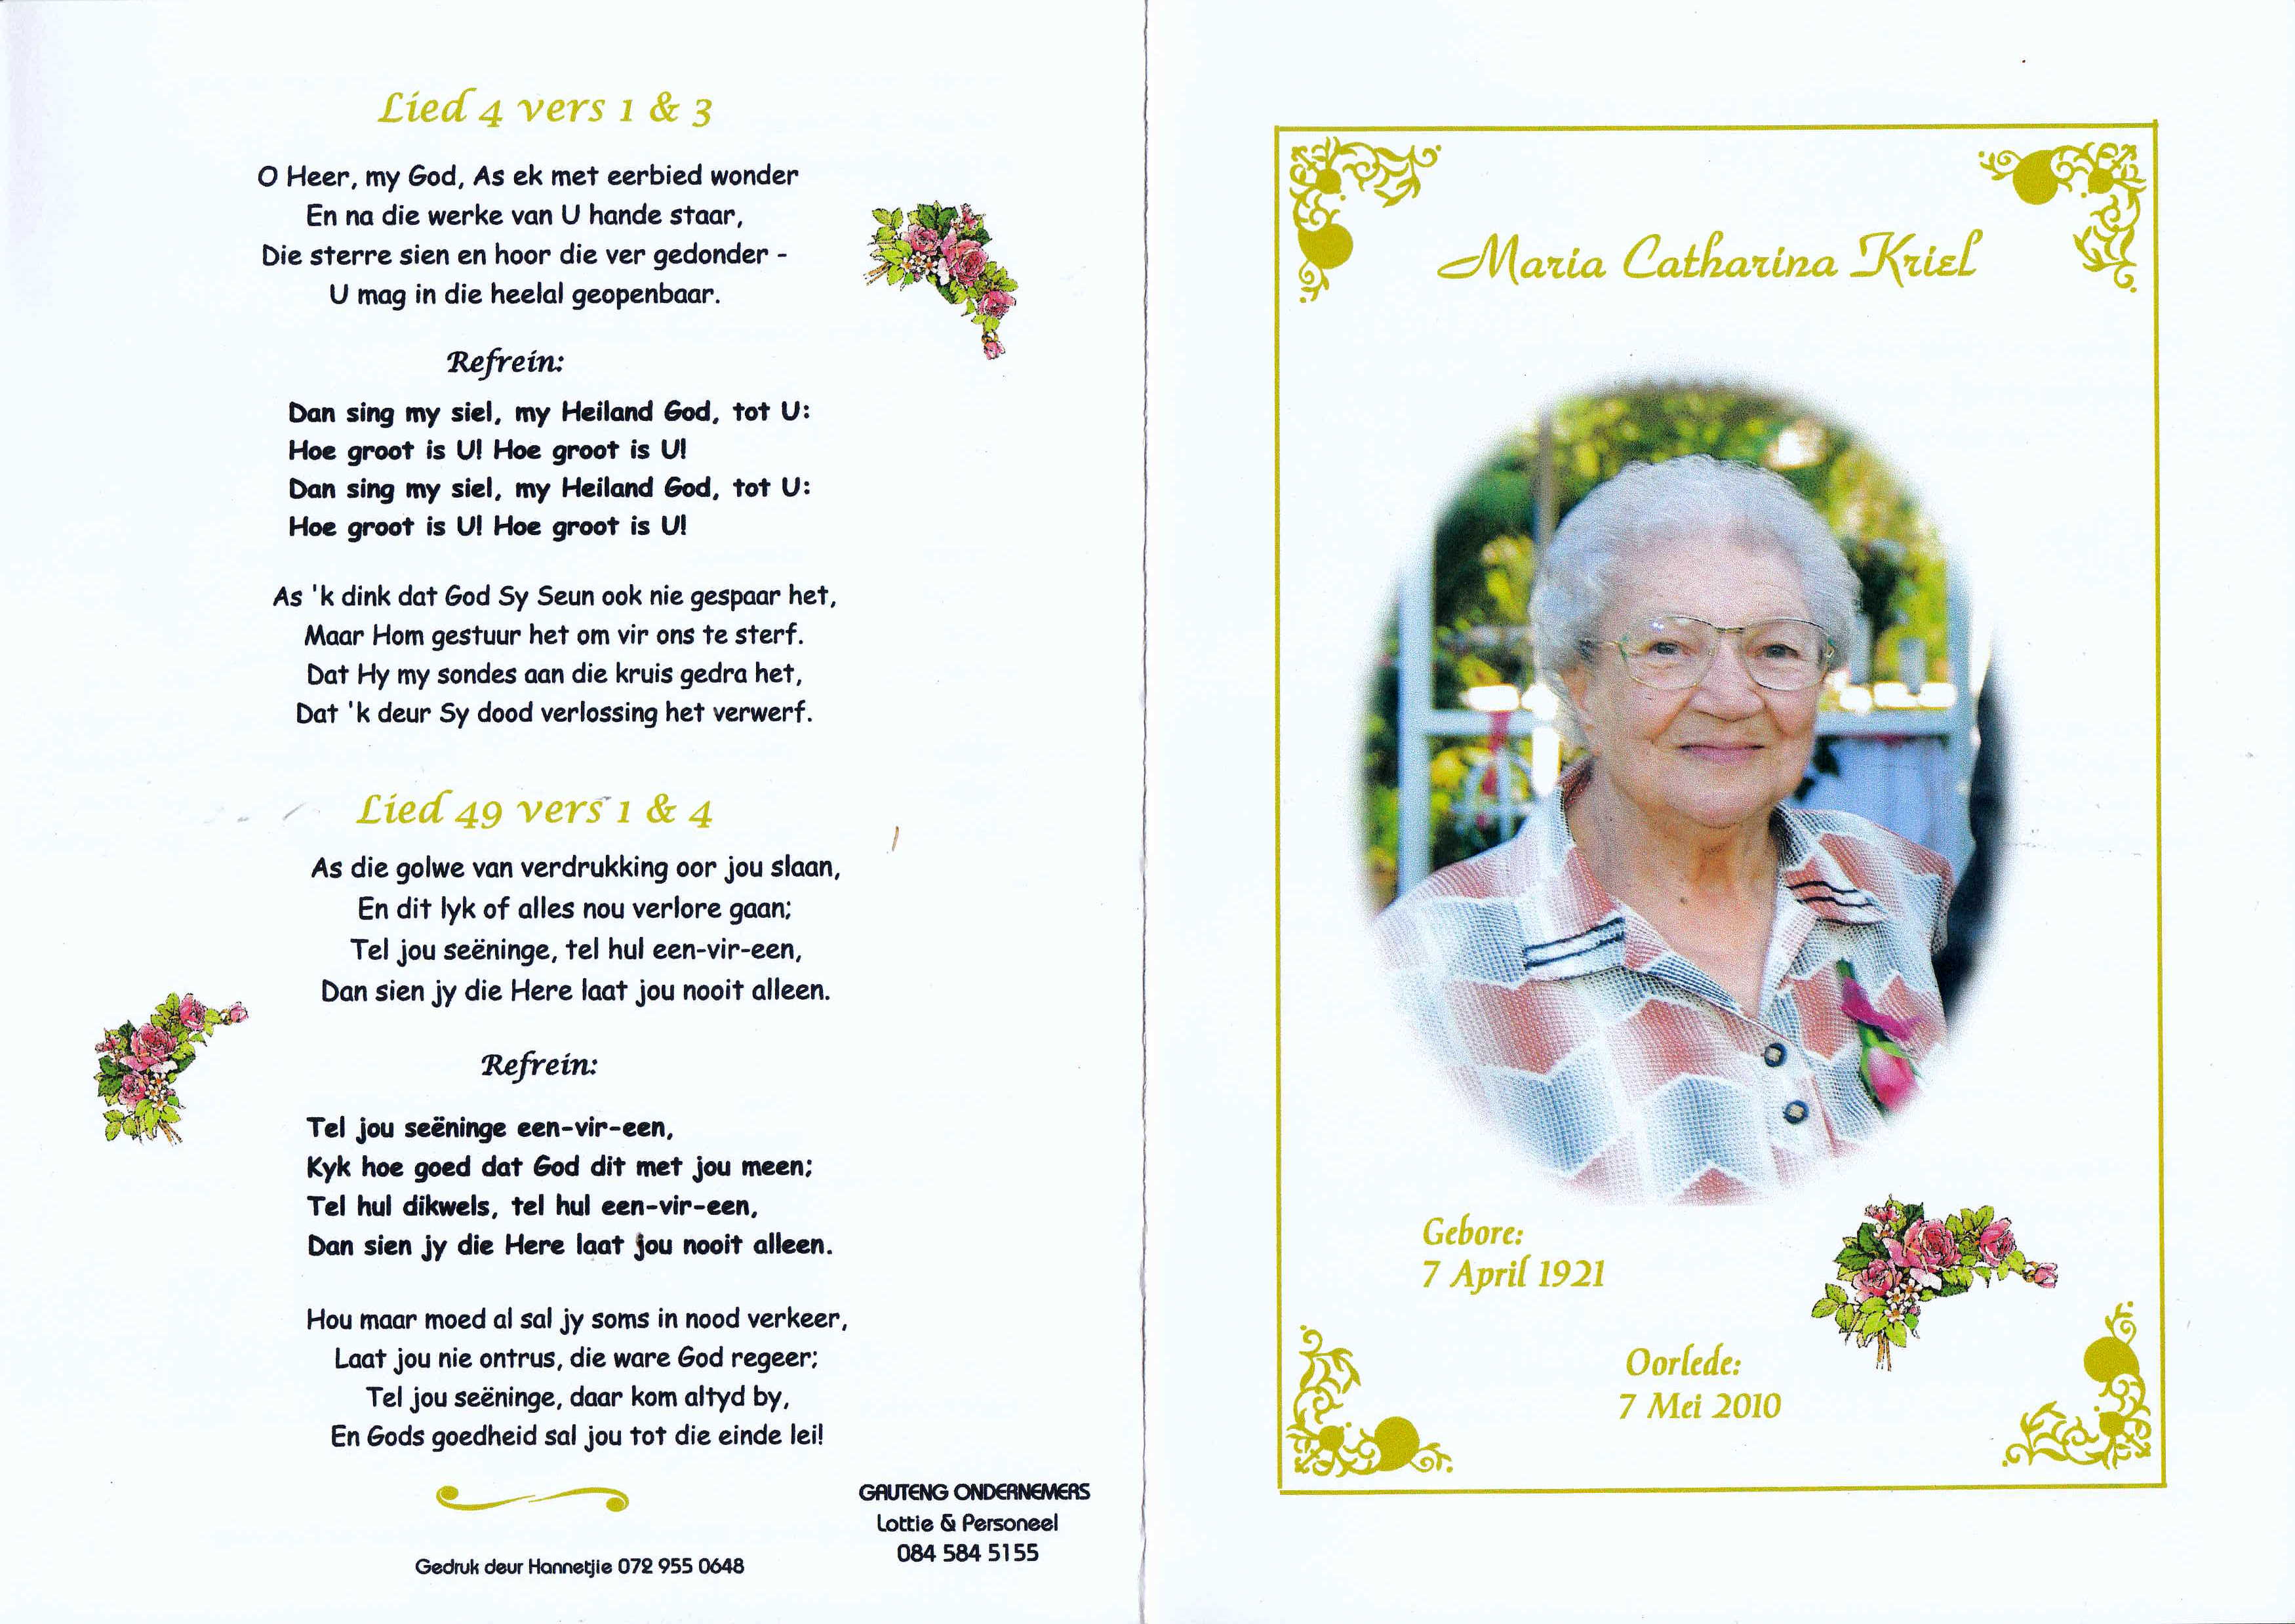 Lied 4 vers 1 & 3
O Heer, my God, As ek met eerbied wonder
En na die werke van U hande staar,
Die sterre sien en hoor die ver gedonder -
U mag in die heelal geopenbaar.
Refrein:
Dan sing my siel, my Heiland God, tot U:
Hoe groot is U! Hoe groot is U!
Dan sing my siel, my Heiland God, tot U:
Hoe groot is U! Hoe groot is U!
As 'k dink dat God Sy Seun ook nie gespaar het,
Maar Hom gestuur het om vir ons te sterf.
Dat Hy my sondes aan die kruis gedra het,
Dat 'k deur Sy dood verlossing het verwerf.
Lied 49 vers 1 & 4
As die golwe van verdrukking oor jou slaan,
En dit lyk of alles nou verlore gaan;
Tel jou seëninge, tel hul een-vir-een,
Dan sien jy die Here laat jou nooit alleen.
Refrein:
Tel jou seëninge een-vir-een,
Kyk hoe goed dat God dit met jou meen;
Tel hul dikwels, tel hul een-vir-een,
Dan sien jy die Here laat jou nooit alleen.
Hou maar moed al sal jy soms in nood verkeer,
Laat jou nie ontrus, die ware God regeer;
Tel jou seëninge, daar kom altyd by,
En Gods goedheid sal jou tot die einde lei!
GAUTENG ONDERNEMERS
Lottie & Personeel
084 584 5155
Gedruk deur Hannetjie 072 955 0648
Maria Catharina Kriel
Gebore:
7 April 1921
Oorlede:
7 Mei 2010